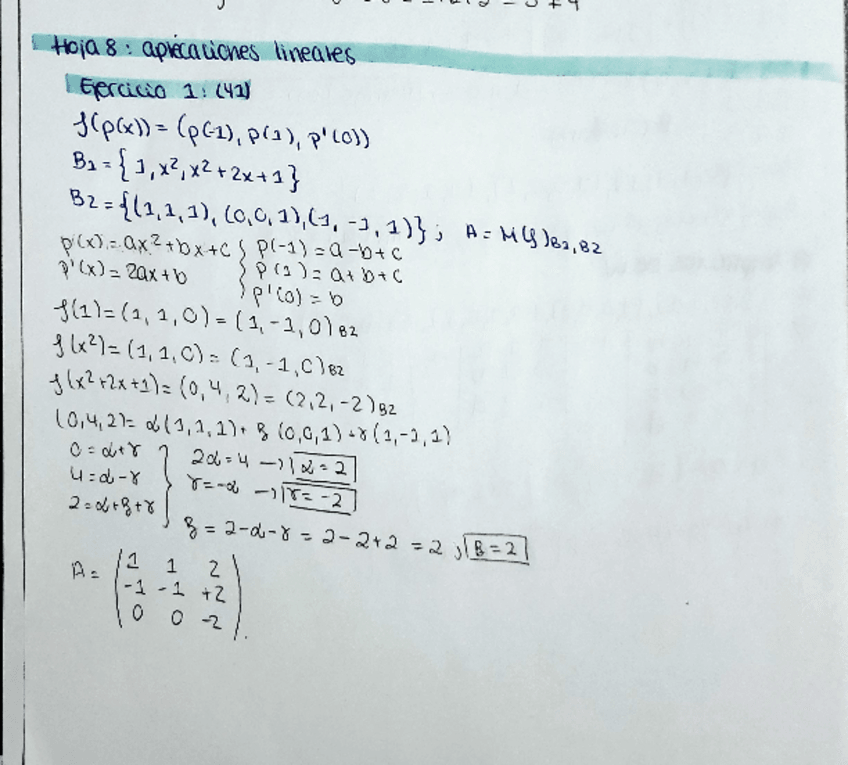 Hoja 8: aplicaciones lineales
Ejercicio 1: (41)
f(p(x)) = (p(-1), p(1), p'(0))
B1 = {1, x², x² + 2x + 1}
B2 = {(1, 1, 1), (0, 0, 1), (1, -1, 1)} ; A = M(f)B1, B2
p(x) = ax² + bx + c { p(-1) = a - b + c
p'(x) = 2ax + b { p(1) = a + b + c
p'(0) = b
f(1) = (1, 1, 0) = (1, -1, 0)B2
f(x²) = (1, 1, 0) = (1, -1, 0)B2
f(x² + 2x + 1) = (0, 4, 2) = (2, 2, -2)B2
(0, 4, 2) = α(1, 1, 1) + β(0, 0, 1) + γ(1, -1, 1)
0 = α + γ } 2α = 4 → α = 2
4 = α - γ } γ = -α → γ = -2
2 = α + β + γ
β = 2 - α - γ = 2 - 2 + 2 = 2 ; β = 2
A = ( 1 1 2
-1 -1 +2
0 0 -2 ).